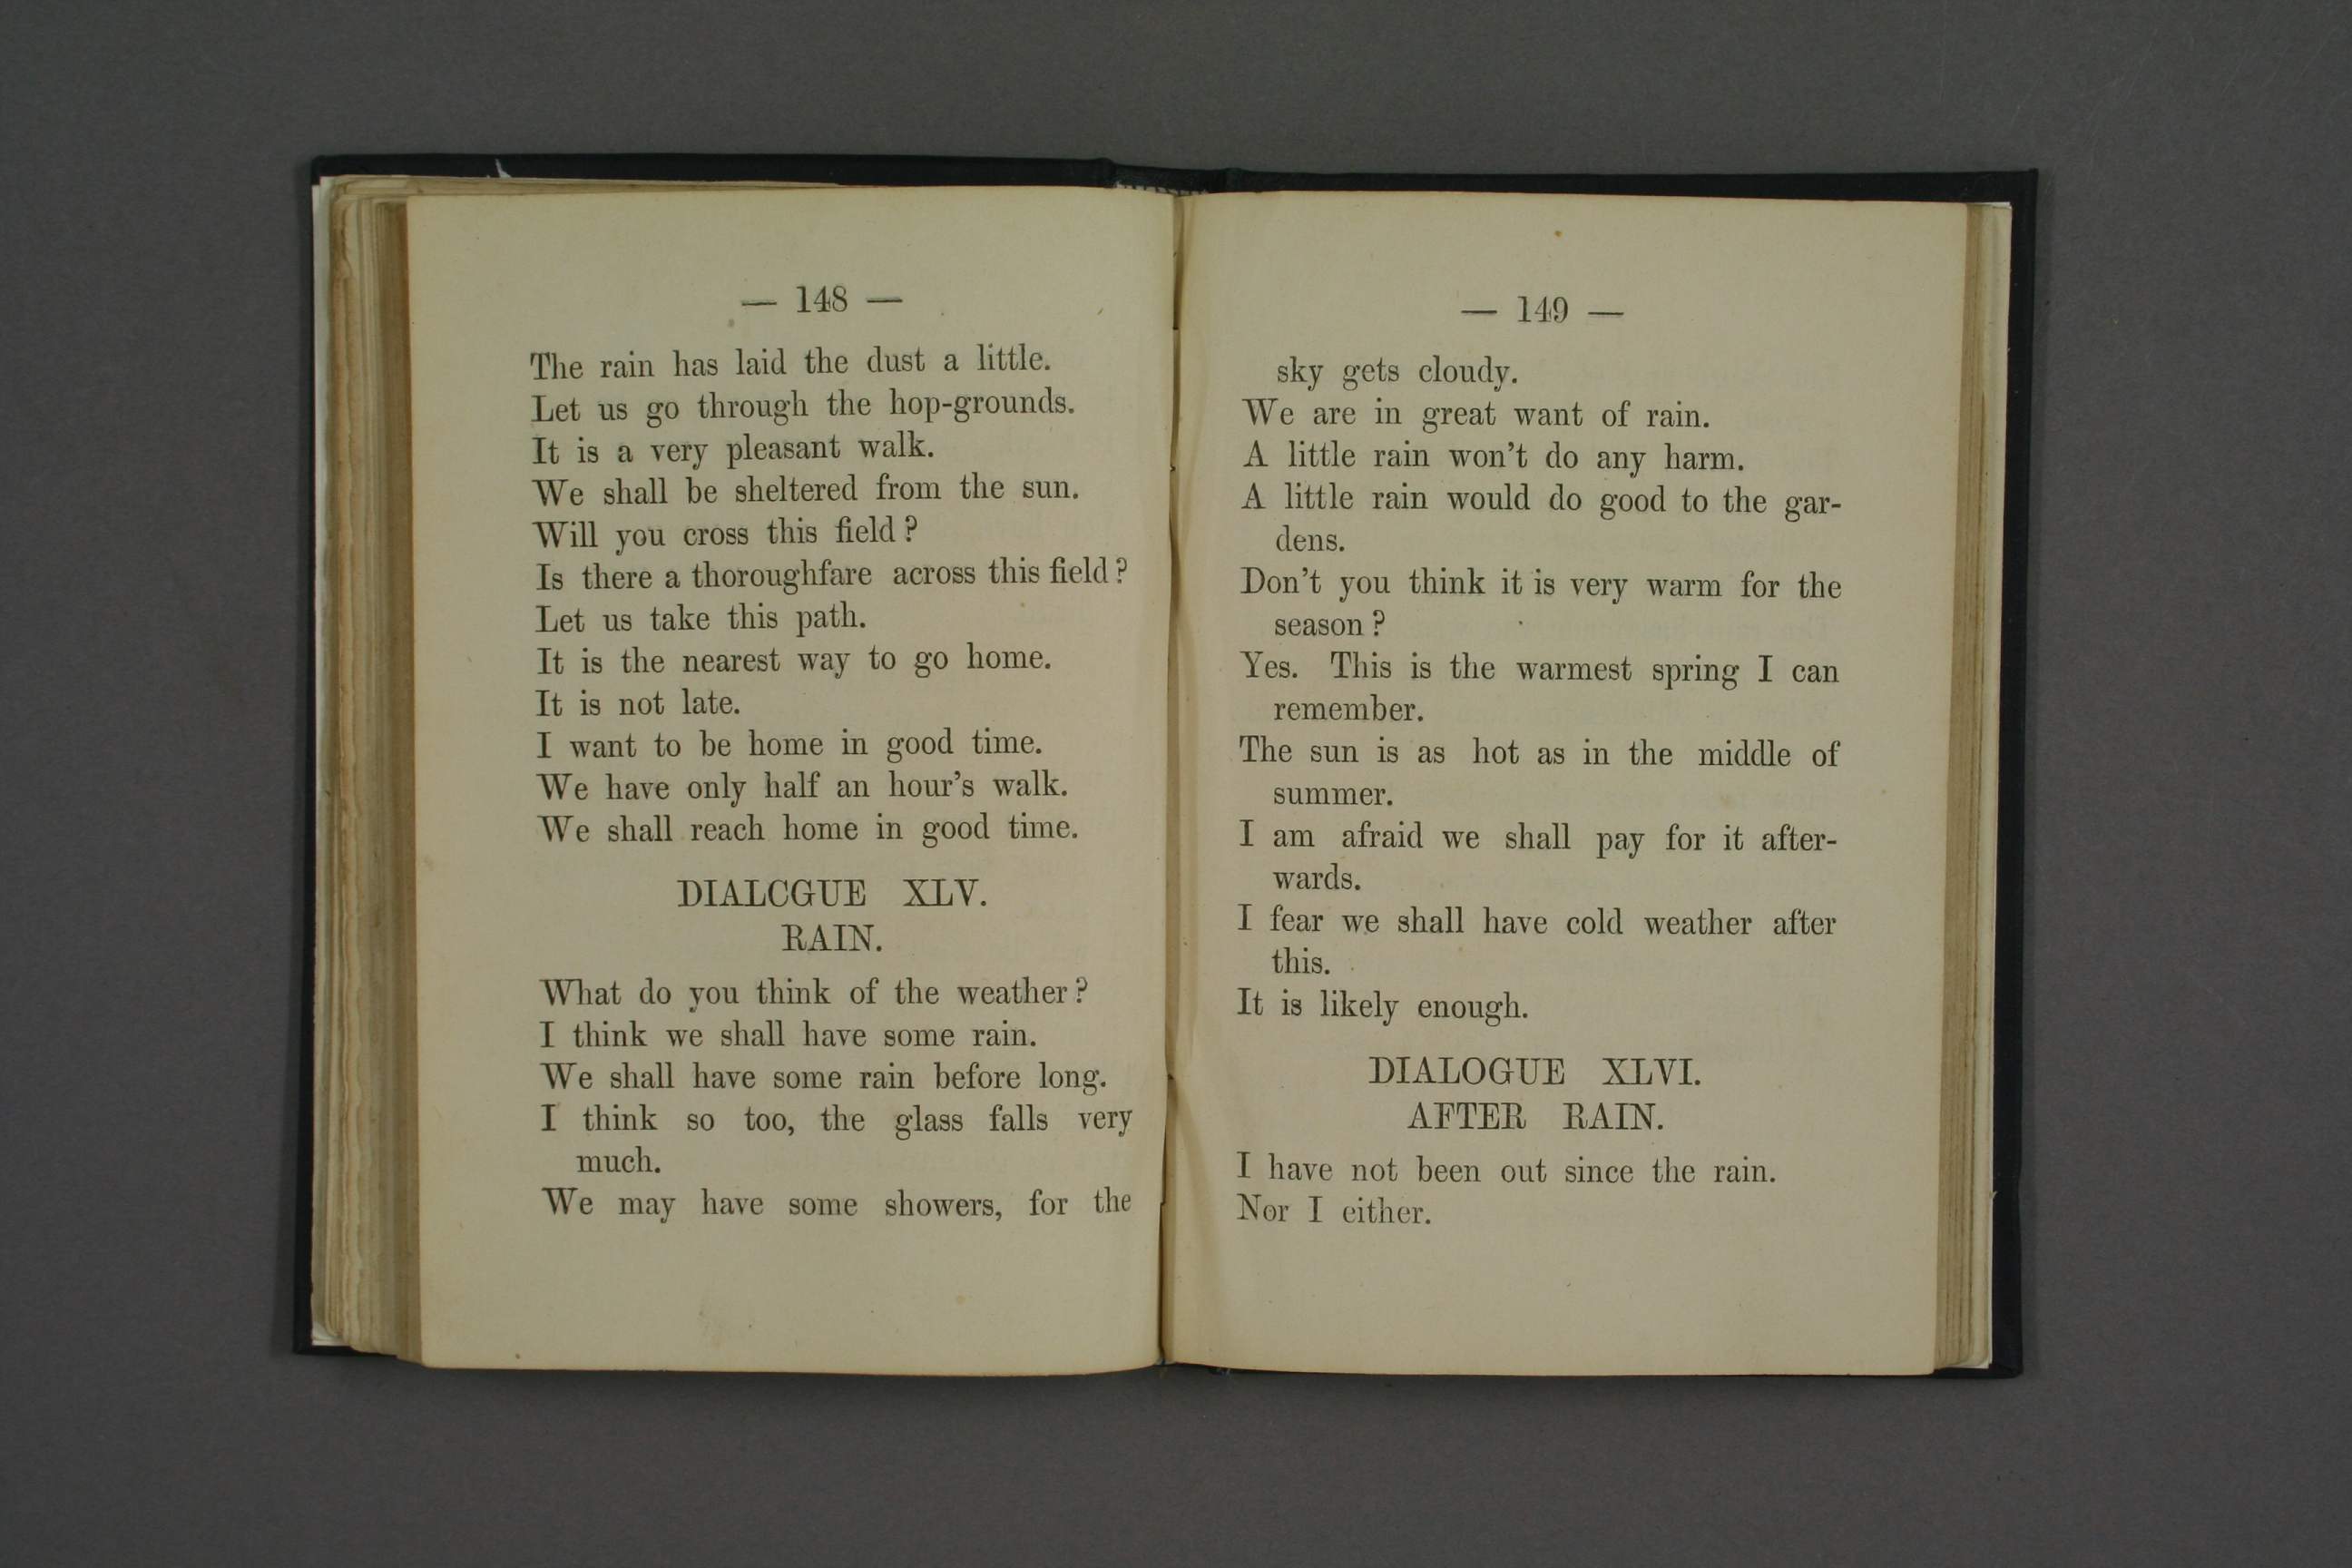 — 148 —
The rain has laid the dust a little.
Let us go through the hop-grounds.
It is a very pleasant walk.
We shall be sheltered from the sun.
Will you cross this field?
Is there a thoroughfare across this field?
Let us take this path.
It is the nearest way to go home.
It is not late.
I want to be home in good time.
We have only half an hour's walk.
We shall reach home in good time.
DIALCGUE XLV.
RAIN.
What do you think of the weather?
I think we shall have some rain.
We shall have some rain before long.
I think so too, the glass falls very
much.
We may have some showers, for the
— 149 —
sky gets cloudy.
We are in great want of rain.
A little rain won't do any harm.
A little rain would do good to the gar-
dens.
Don't you think it is very warm for the
season?
Yes. This is the warmest spring I can
remember.
The sun is as hot as in the middle of
summer.
I am afraid we shall pay for it after-
wards.
I fear we shall have cold weather after
this.
It is likely enough.
DIALOGUE XLVI.
AFTER RAIN.
I have not been out since the rain.
Nor I either.